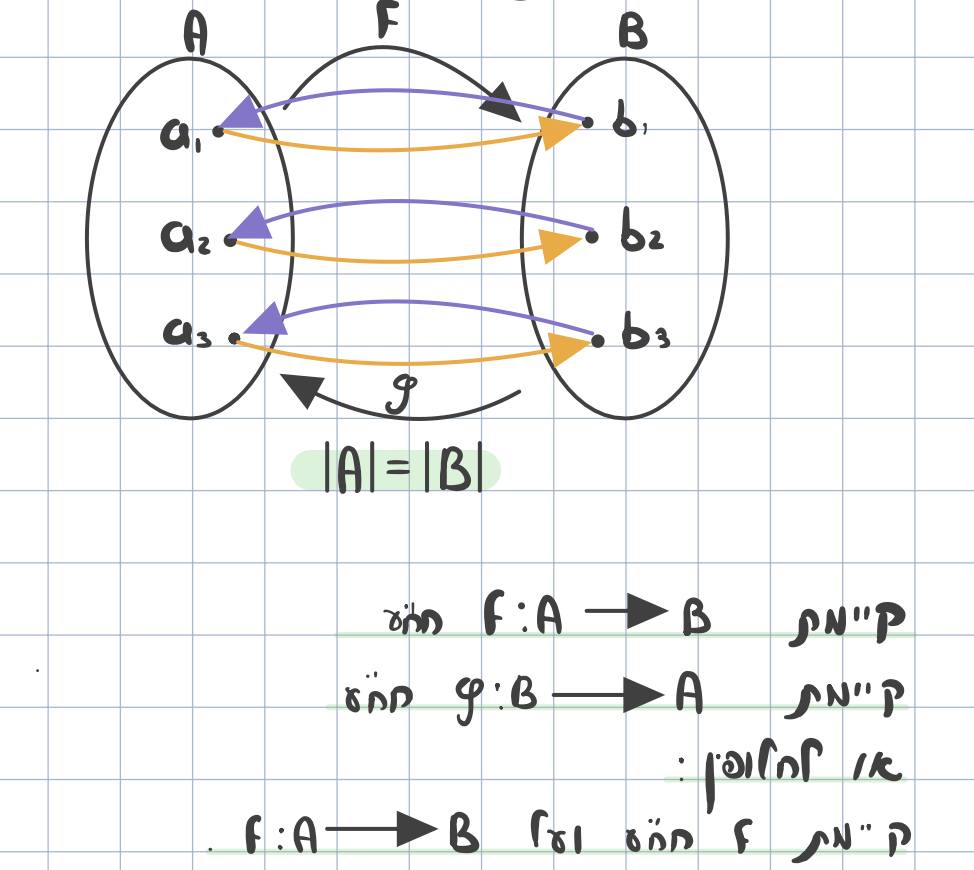 A F B
a₁ b₁
a₂ b₂
a₃ b₃
g
|A|=|B|
קיימת F:A → B חח"ע
קיימת g:B → A חח"ע
או לחלופין :
קיימת F חח"ע ועל F:A → B .